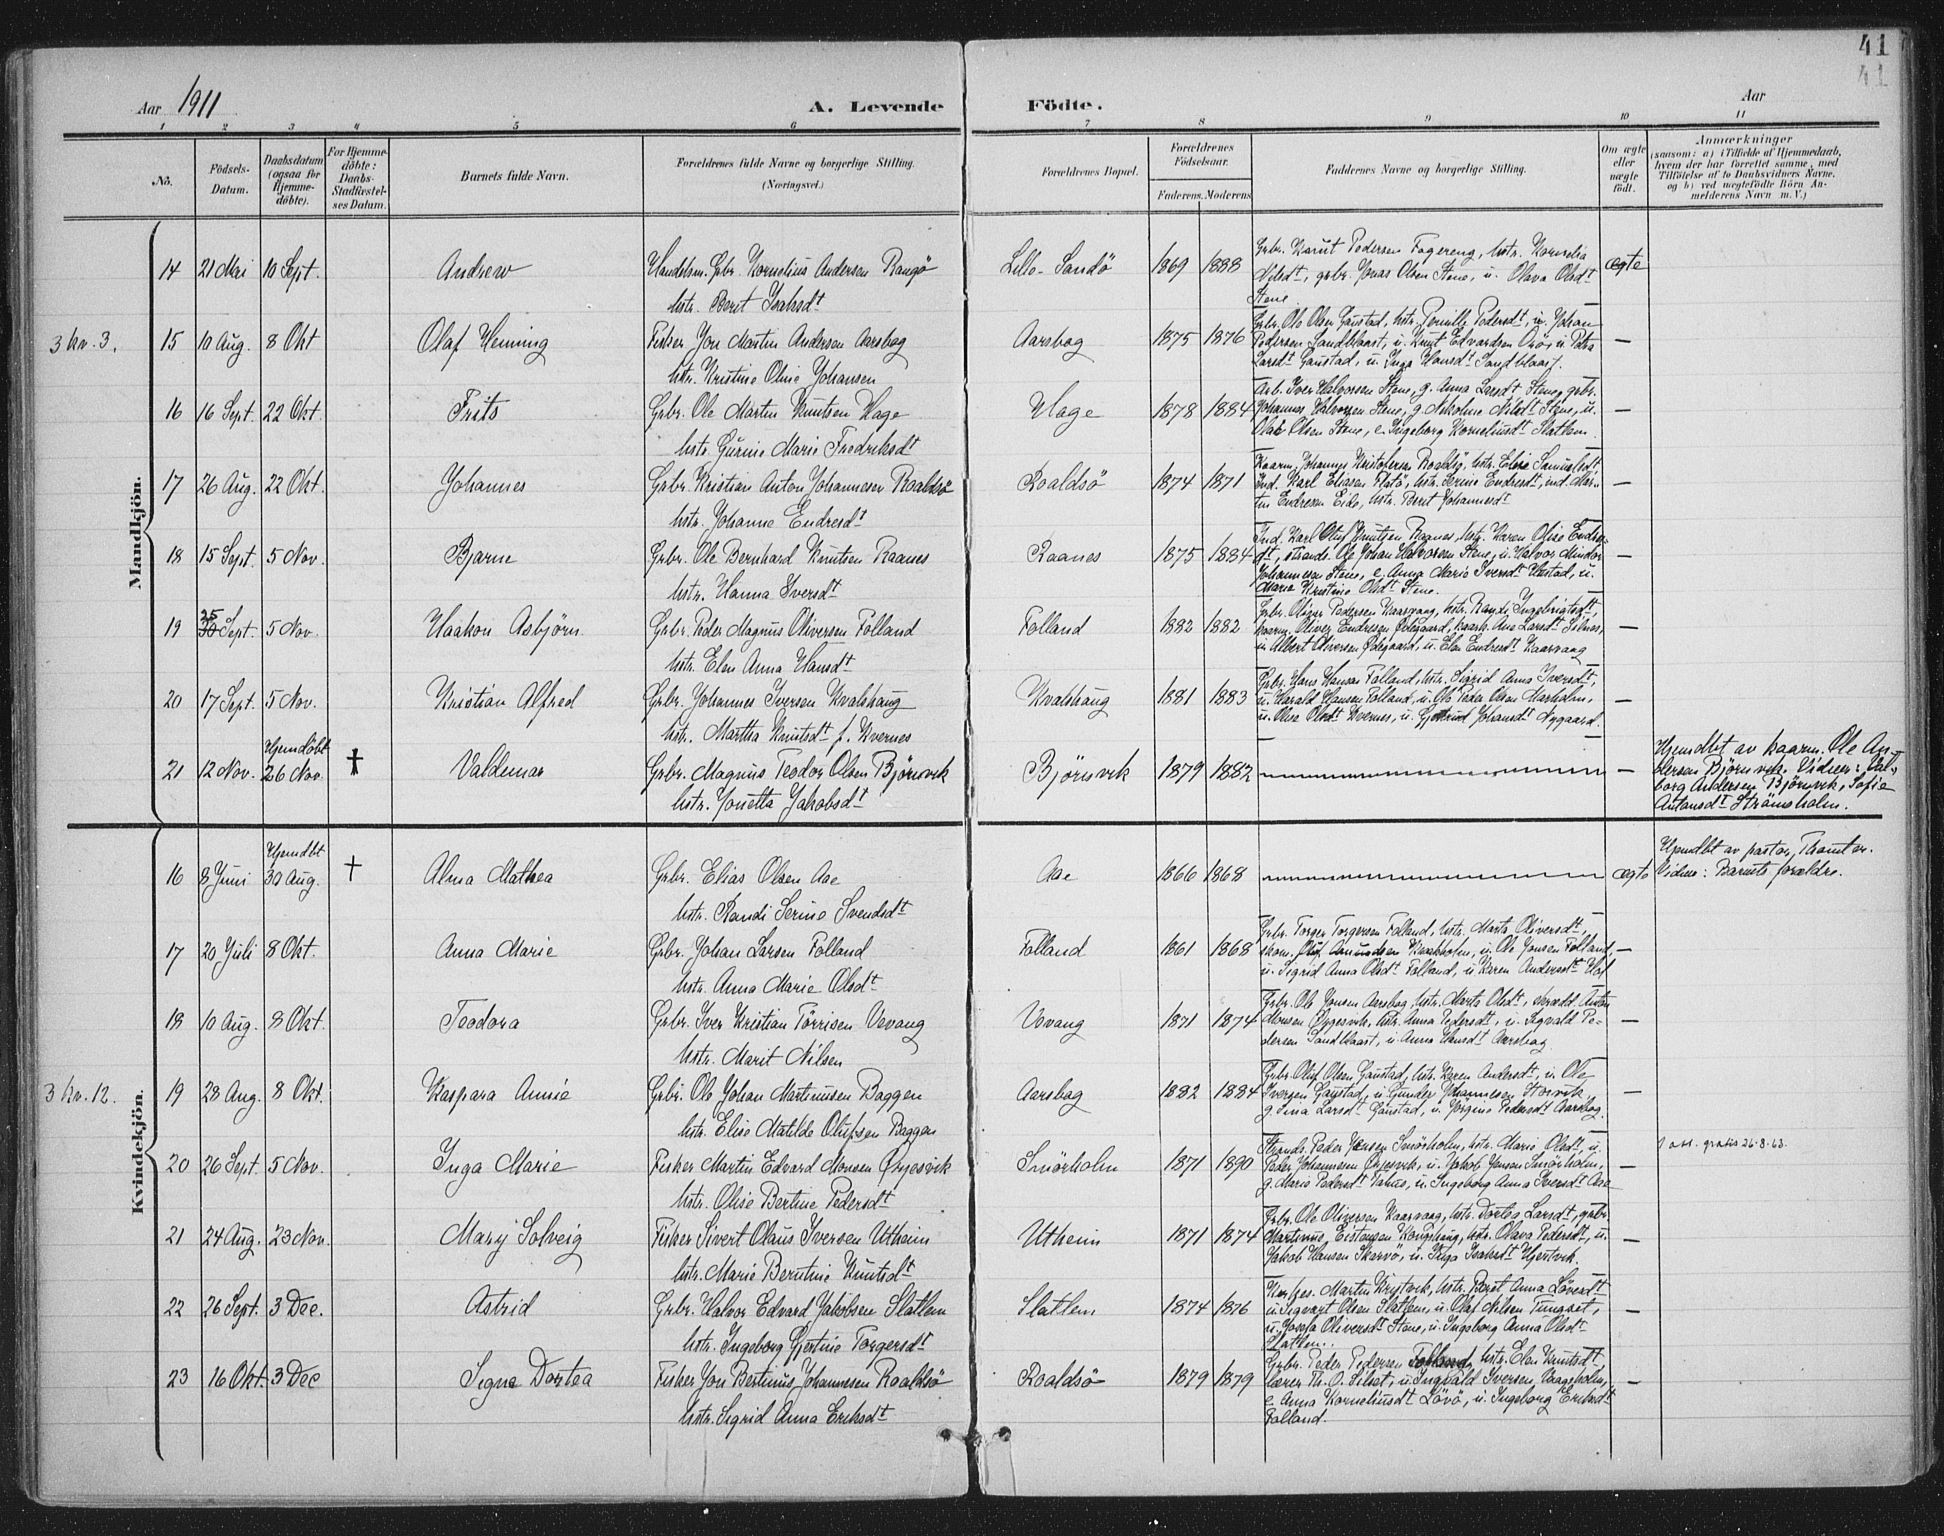 41
41
Aar 1911
A. Levende
Födte.
Aar
1 2 3 4 5 6 7 8 9 10 11
No.
Födsels-
Datum.
Daabsdatum
(ogsaa for
Hjemme-
döbte).
For Hjemme-
döbte:
Daabs-
Stadfæstel-
ses Datum.
Barnets fulde Navn.
Forældrenes fulde Navne og borgerlige Stilling.
(Næringsvei.)
Forældrenes Bopæl.
Forældrenes
Födselsaar.
Faderens. Moderens
Faddernes Navne og borgerlige Stilling.
Om ægte
eller
uægte
födt.
Anmærkninger
(saasom: a) i Tilfælde af Hjemmedaab,
hvem der har forrettet samme, med
Tilföielse af to Daabsvidners Navne,
og b) ved uægtefödte Börn An-
melderens Navn m. V.)
Mandkjön.
14 21 Mai 10 Sept. Andrew Handelsm. Gbr. Kornelius Andersen Rangö
hstr. Berit Isaksdt
Lille-Sandö 1869 1888
Gbr. Knut Pedersen Fagereng, hstr. Kornelia
Nilsdt, gbr. Jonas Olsen Stene, u. Olava Olsdt
Stene
ægte
3 kv. 3.
15 10 Aug. 8 Okt Olaf Henning Fisker Jon Martin Andersen Aarsbog
hstr. Kristine Oline Johansen
Aarsbog 1875 1876
Gbr. Ole Olsen Gaustad, hstr. Pernille Pedersdt, u. Johan
Pedersen Sandblaast, u. Knut Edvardsen Osö, u. Petra
Larsdt Gaustad, u. Inga Hansdt Sandblaast.
—
16 16 Sept. 22 Okt. Frits Gbr. Ole Martin Knutsen Hage
hstr. Gurine Marie Fredriksdt
Hage 1878 1884
Arb. Iver Halvorsen Stene, g. Anna Larsdt Stene, gbr.
Johannes Halvorsen Stene, g. Nikoline Nilsdt Stene, u.
Olak Olsen Stene, e. Ingeborg Korneliusdt Slatlem
—
17 26 Aug. 22 Okt. Johannes Gbr. Kristian Anton Johannesen Roaldsö
hstr. Johanne Endresdt
Roaldsö 1874 1871
Kaarm. Johannes Kristofersen Roaldsö, hstr. Elise Samuelsdt
Ind. Karl Eliasen Flatö, hstr. Serine Endresdt, ind. Mar-
tin Endresen Eide, hstr. Berit Johannesdt
—
18 15 Sept. 5 Nov. Bjarne Gbr. Ole Bernhard Knutsen Raanes
hstr. Hanna Iversdt
Raanes 1875 1884
Ind. Karl Oluf Knutsen Ragnes, hstr. Karen Olise Endres-
dt, strands. Ole Johan Halvorsen Stene, u. Halvor Mindor
Johannesen Stene, e. Anna Marie Iversdt Hustad, u.
Marie Kristine Olsdt Stene.
—
19 25 30 Sept. 5 Nov. Haakon Asbjörn Gbr. Peder Magnus Oliversen Folland
hstr. Elen Anna Hansdt
Folland 1882 1882
Gbr. Oliver Pedersen Kaarvaag, hstr. Randi Ingebrigtsdt,
kaarm. Oliver Endresen Ödegaard, kaark. Ane Larsdt Silnes,
u. Albert Oliversen Ödegaard, u. Elen Endresdt Kaarvaag
—
20 17 Sept. 5 Nov. Kristian Alfred Gbr. Johannes Iversen Kvalshaug
hstr. Martha Knutsdt f. Kvernes
Kvalshaug 1881 1883
Gbr. Hans Hansen Folland, hstr. Sigrid Anna Iversdt,
u. Harald Hansen Folland, u. Ole Peder Olsen Harholm,
u. Olise Olsdt Kvernes, u. Gjertrud Johansdt Nygaard.
—
21 12 Nov. Hjemdöbt 26 Nov. † Valdemar Gbr. Magnus Teodor Olsen Björnsvik
hstr. Jonetta Jakobsdt
Björnsvik 1879 1882
—
Hjemdbt av kaarm. Ole An-
dersen Björnsvik. Vidner: Val-
borg Andersen Björnsvik, Sofie
Antonsdt Strömsholm.
Kvindekjön.
16 8 Juni Hjemdbt 30 Aug. † Alma Mathea Gbr. Elias Olsen Aae
hstr. Randi Serine Svendsdt
Aae 1866 1868
ægte
Hjemdbt av pastor
Vidne: Barnets forældre.
17 20 Juli 8 Okt. Anna Marie Gbr. Johan Larsen Folland
hstr. Anna Marie Olsdt
Folland 1861 1868
Gbr. Torger Torgersen Folland, hstr. Marta Oliversdt,
skom. Oluf Amundsen Kvakholm, u. Ole Jonsen Folland,
u. Sigrid Anna Olsdt Folland, u. Karen Andersdt Hol
—
18 10 Aug. 8 Okt. Teodora Gbr. Iver Kristian Törrisen Vevang
hstr. Marit Nilsen
Vevang 1871 1874
Gbr. Ole Jonsen Aarsbog, hstr. Marta Olsdt, Anton
Monsen Örjesvik, hstr. Anna Pedersdt, u. Sigvald Pe-
dersen Sandblaast, u. Anna Hansdt Aarsbog
—
3 kv. 12.
19 28 Aug. 8 Okt. Kaspara Annie Gbr. Ole Johan Martinusen Baggen
hstr. Elise Matilde Olufsen Baggen
Aarsbog 1882 1884
Gbr. Oluf Olsen Gaustad, hstr. Karen Andersdt, u. Ole
Iversen Gaustad, u. Gunder Johannesen Storvik
g. Lina Larsdt Gaustad, u. Jörgine Pedersdt Aarsbog.
—
20 26 Sept. 5 Nov. Inga Marie Fisker Martin Edvard Monsen Örjesvik
hstr. Olise Bertine Pedersdt
Smörholm 1871 1890
Strands. Peder Jensen Smörholm, hstr. Marie Olsdt, u.
Peder Johannesen Örjesvik, u. Jakob Jensen Smörholm,
g. Marie Pedersdt Vahus, u. Ingeborg Anna Iversdt Aae
—
1 att. gratis 26-8-63.
21 24 Aug. 23 Nov. Mary Solveig Fisker Sivert Olaus Iversen Utheim
hstr. Marie Berntine Knutsdt
Utheim 1871 1874
Gbr. Ole Oliversen Kaarvaag, hstr. Dortea Larsdt, gbr.
Martinus Eistensen Kongshaug, hstr. Olava Pedersdt, u.
Jakob Hansen Skarvö, u. Inga Isaksdt Hjertvik.
—
22 26 Sept. 3 Dec. Astrid Gbr. Halvor Edvard Jakobsen Slatlem
hstr. Ingeborg Gjertine Torgersdt
Slatlem 1874 1876
Martin Krystvik, hstr. Beret Anna Löversdt
u. Sigvart Olsen Slatlem, u. Olaf Nilsen Tungset,
u. Josefa Oliversdt Stene, u. Ingeborg Anna Olsdt
Slatlem.
—
23 16 Okt. 3 Dec Signe Dortea Fisker Jon Bertinus Johannesen Roaldsö
hstr. Sigrid Anna Eriksdt
Roaldsö 1879 1879
Gbr. Peder Pedersen Folland, hstr. Elen Knutsdt,
lærer Th. O. Silset, u. Ingvald Iversen Vaageholm,
e. Anna Korneliusdt Lövö, u. Ingeborg Eriksdt
Folland.
—